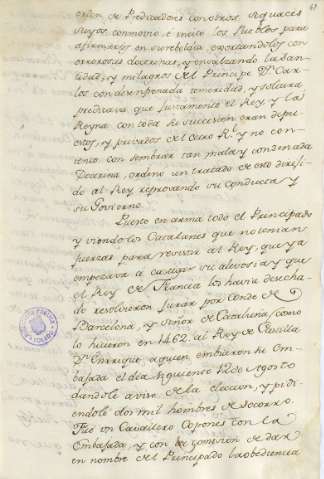 61
orden de Predicadores con otros sequaces
suyos conmovio e incitó los Pueblos para
afirmarlos en su rebeldia exortandoles con
errores doctrinas, y ensalzando la San-
tidad, y milagros del Principe Dn. Car-
los con desenfrenada temeridad, y locura
predicava, que juntamente el Rey y la
Reyna con toda su succesion eran depu-
estos, y privados del Cetro Rl. y no con-
tento con sembrar tan mala, y condenada
Doctrina, ordenó un tratado de esto dirigi-
do al Rey reprovando su conducta y
su Govierno.
Puesto en arma todo el Principado
y viendo los Catalanes que no tenian
fuerzas para resistir al Rey, que ya
empezava a castigar su alevosia y que
el Rey de Francia los havia desecha-
do resolvieron jurar por Conde de
Barcelona, y Señor de Cataluña, como
lo hicieron en 1462. al Rey de Castilla
Dn. Enrrique, a quien embiaron su Em-
bajada el dia siguiente 12 de Agosto
dandole aviso de la eleccion, y pidi-
endole dos mil hombres de socorro.
Fue un Cavallero Copones con la
Embajada, y con la comision de dar
en nombre del Principado la obediencia